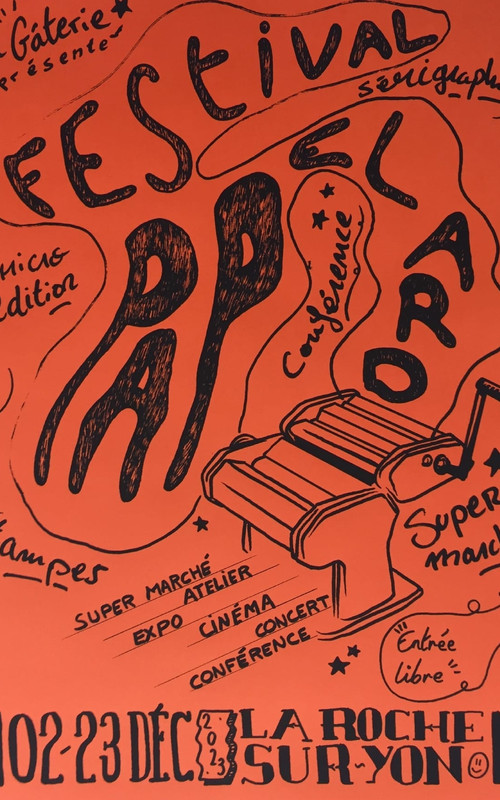 Gâterie
présente
FESTIVAL
sérigraphi
PAP
EL
ARO
micro
édition
Conférence
Super
march
tampes
SUPER MARCHÉ
ATELIER
EXPO CINÉMA
CONCERT
CONFÉRENCE
Entrée
libre
02-23 DÉC 2023 LA ROCHE
SUR-YON